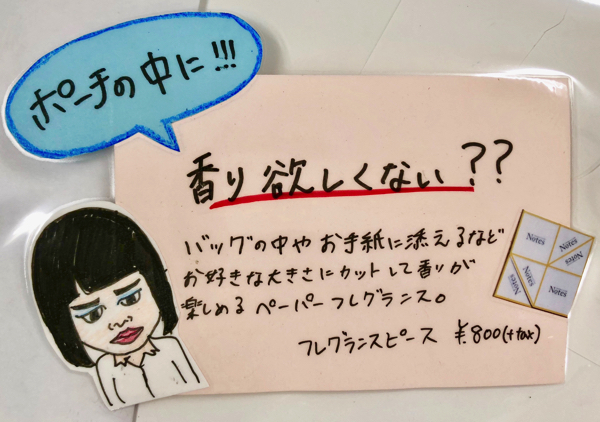 ポーチの中に!!!
香り欲しくない??
バッグの中やお手紙に添えるなど
お好きな大きさにカットして香りが
楽しめるペーパーフレグランス。
フレグランスピース ¥800(+tax)
Notes
Notes
Notes
Notes
Notes
Notes